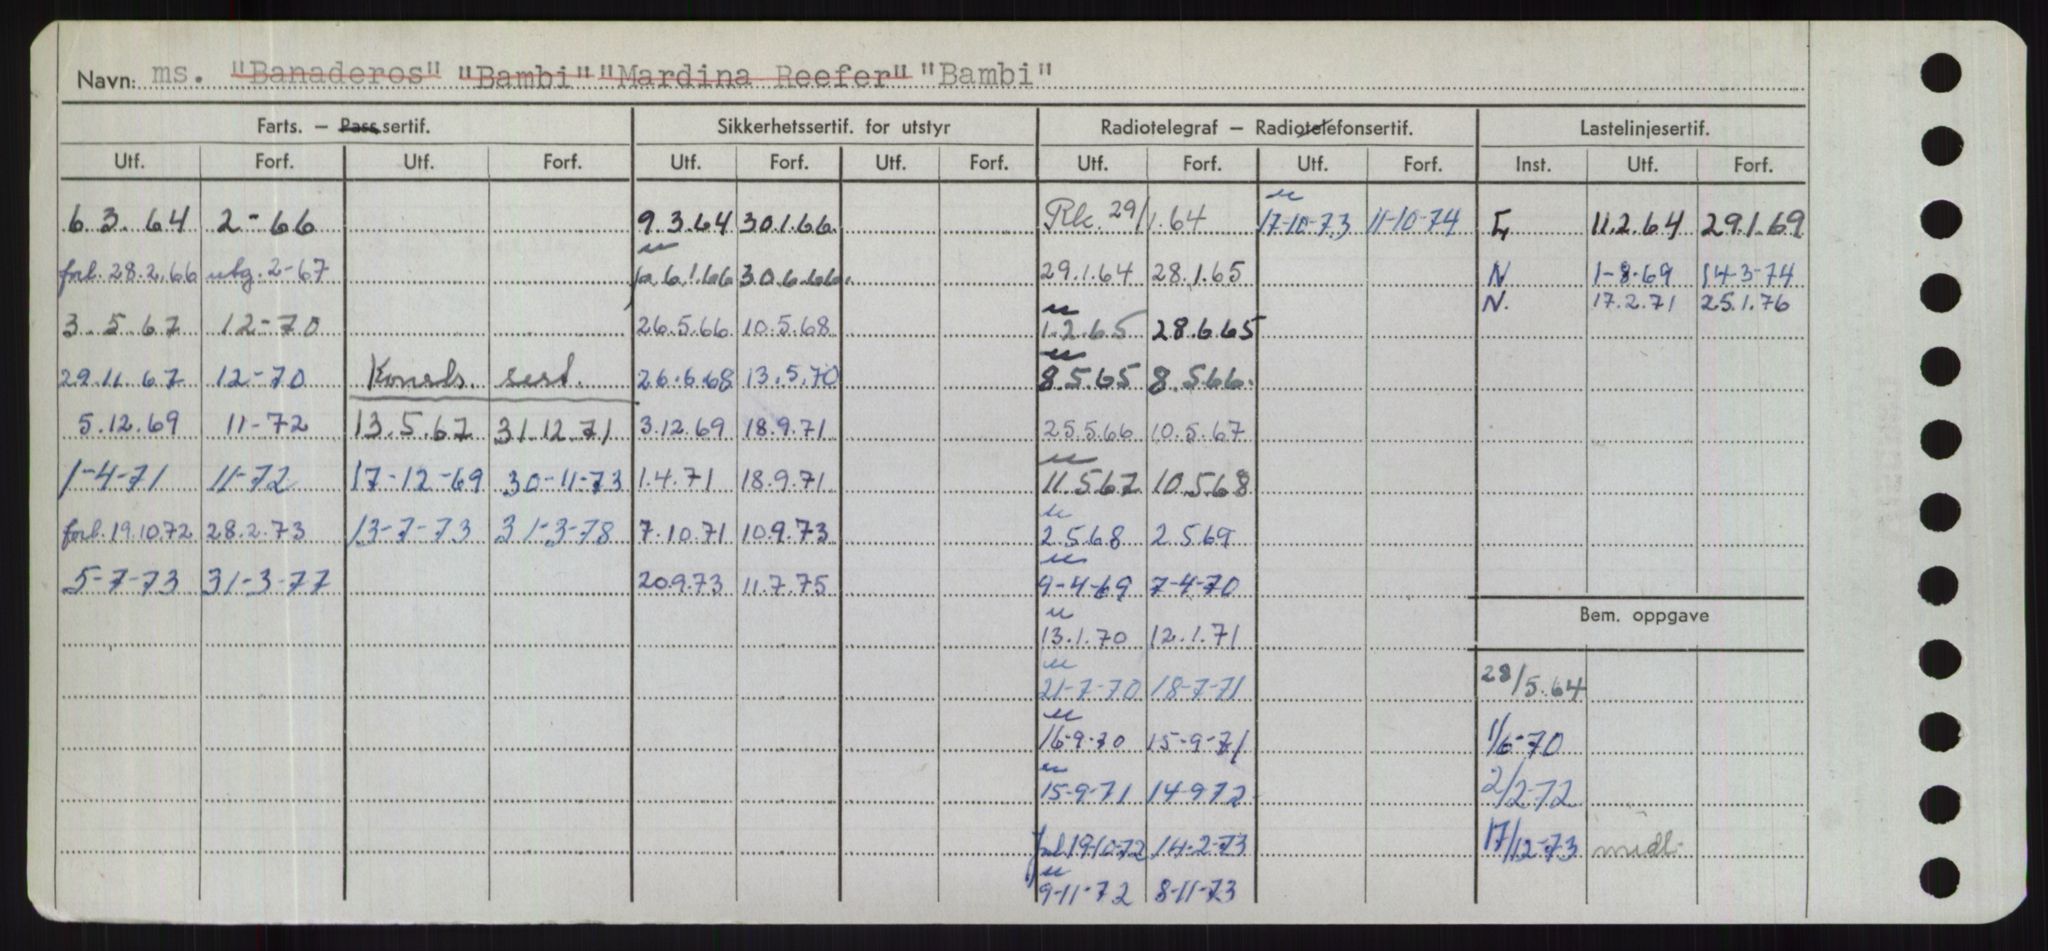 Navn: ms. "Banaderos" "Bambi" "Mardina Reefer" "Bambi"
Farts. – Pass.sertif. Sikkerhetssertif. for utstyr Radiotelegraf – Radiotelefonsertif. Lastelinjesertif.
Utf. Forf. Utf. Forf. Utf. Forf. Utf. Forf. Utf. Forf. Utf. Forf. Inst. Utf. Forf.
6.3.64 2-66 9.3.64 30.1.66 Rk. 29/1.64 17-10-73 11-10-74 11.2.64 29.1.69
forl. 28.2.66 utg. 2-67 6.1.66 30.6.66. 29.1.64 28.1.65 N 1-8-69 14-3-74
N. 17.2.71 25.1.76
3.5.67 12-70 26.5.66 10.5.68 1.2.65 28.6.65
29.11.67 12-70 Konstr. sert. 26.6.68 13.5.70 8.5.65 8.5.66.
5.12.69 11-72 13.5.67 31.12.71 3.12.69 18.9.71 25.5.66 10.5.67
1-4-71 11-72 17-12-69 30-11-73 1.4.71 18.9.71 11.5.67 10.5.68
forl. 19.10.72 28.2.73 13-7-73 31-3-78 7.10.71 10.9.73 2.5.68 2.5.69
5-7-73 31-3-77 20.9.73 11.7.75 9-4-69 7-4-70
Bem. oppgave
13.1.70 12.1.71
21-7-70 18-7-71 28/5.64
16-9-70 15-9-71 1/6-70
15-9-71 14-9-72 2/2-72
forl 19-10-72 14-2-73 17/12-73 midl.
9-11-72 8-11-73